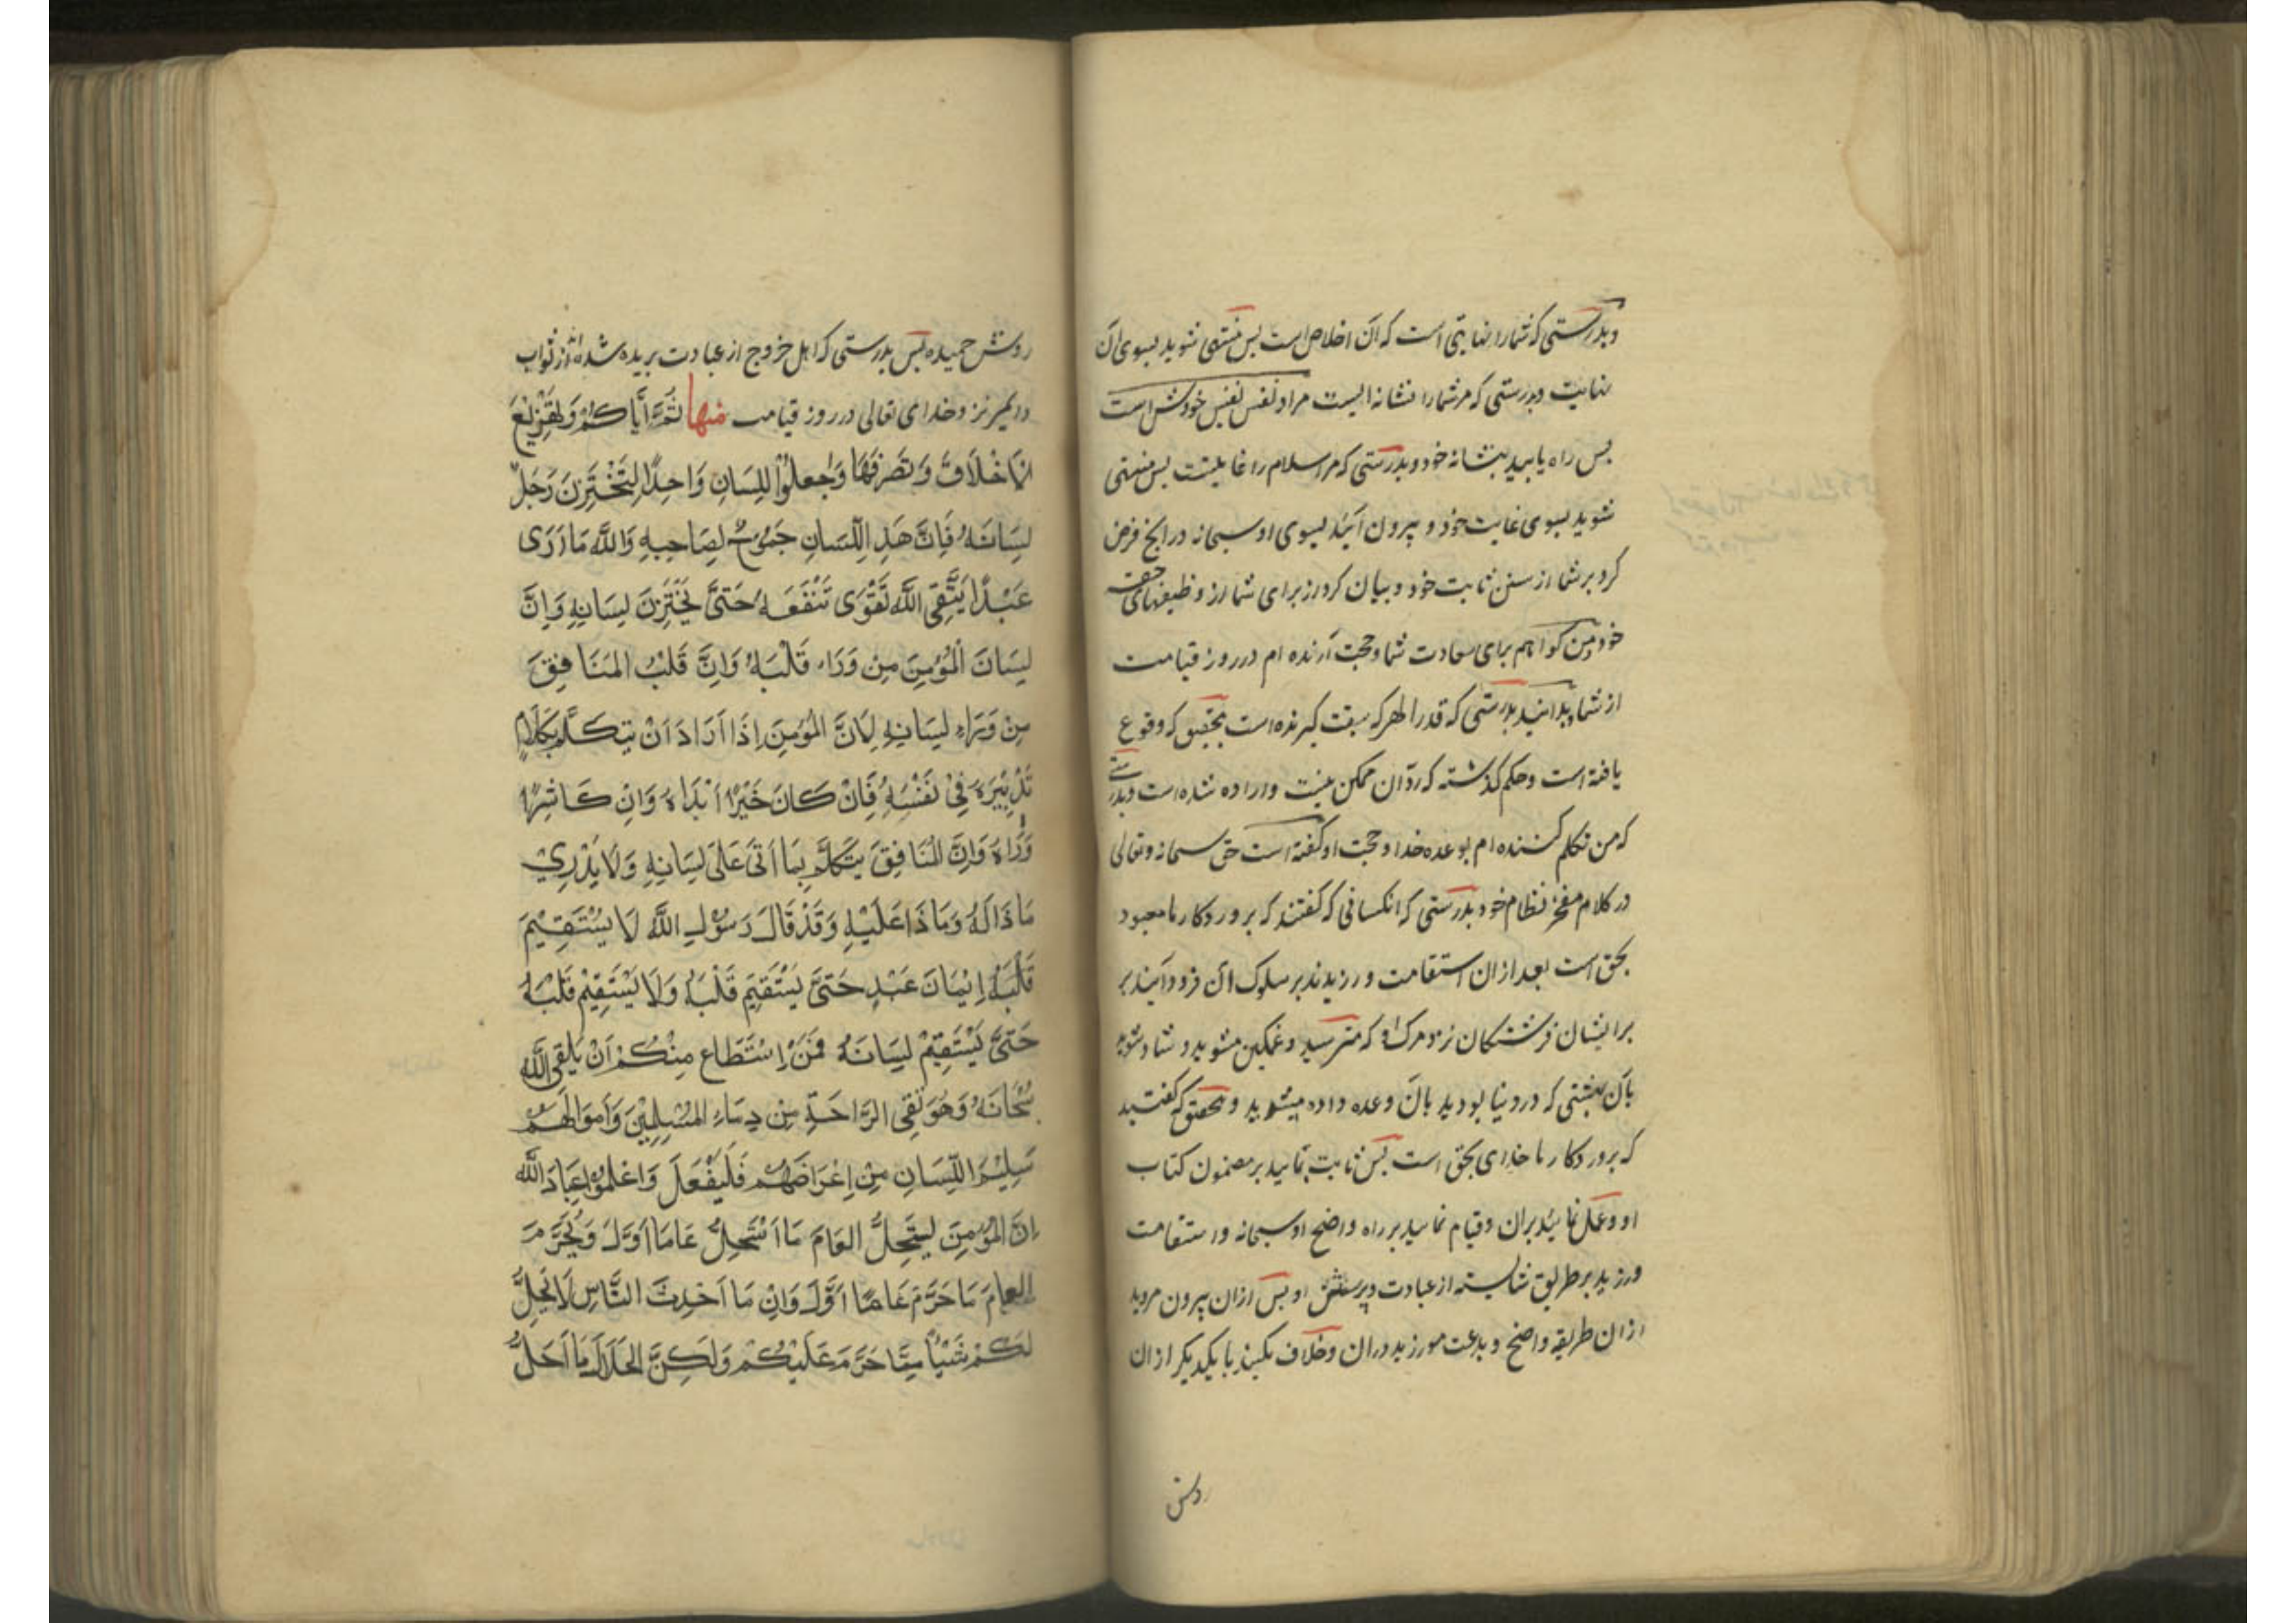 وبدرستی که شمارا نهایتی است که آن اخلاص است پس منتهی شوید بسوی آن
نهایت وبدرستی که مر شمارا نشانه ایست مراد نفس نفیس خودش است
پس راه یابید بنشانه خود وبدرستی که مر اسلام را غایتیست پس منتهی
شوید بسوی غایت خود و بیرون آئید بسوی او سبحانه در آنچ فرض
کرد بر شما از سنن ثابت خود و بیان کرد از برای شما از وظیفهای حق
خود ومن گواهم برای سعادت شما وحجت آرنده ام در روز قیامت
از شما وبدانید بدرستی که قدر الهر که سبقت گیرنده است بتحقیق که وقوع
یافته است وحکم گذشته که رد آن ممکن نیست واراده شده است وبدرستی
که من تکلم کننده ام بوعده خدا وحجت او گفته است حق سبحانه وتعالی
در کلام معجز نظام خود بدرستی که انکسانی که گفتند که پروردکار ما معبود
بحق است بعد از ان استقامت ورزیدند بر سلوک آن فرود آیند بر
برایشان فرشتگان نزد مرک او که مترسید وغمکین مشوید و شاد شوید
بآن بهشتی که در دنیا بودید بآن وعده داده میشوید وبتحقیق که گفتید
که پروردکار ما خدای بحق است پس ثابت بمانید بر مضمون کتاب
او وعمل نمائید بران وقیام نمائید بر راه واضح او سبحانه واستقامت
ورزید بر طریق شایسته از عبادت وپرستش او پس ازان بیرون مروید
ازان طریقه واضح وبدعت مورزید دران وخلاف مکنید با یکدیگر ازان
روش
روش حمیده پس بدرستی که اهل خروج از عبادت بریده شده اند از ثواب
در روز قیامت منها ثُمَّ اَیَّاکُمْ وَتَهْزِیْعَ
الْاَخْلَاقَ وَتَصَرُّفَهَا وَاجْعَلُوْا اللِسَانِ وَاحِدًا لِتَخْتَزِنَ رَجَلٌ
لِسَانَهُ فَاِنَّ هَذِا اللِّسَانِ جَمُوْحٌ لِصَاحِبِهِ وَاللَّهِ مَا اَرَی
عَبْدًا یَتَّقِی اللَّهَ تَقْوَی تَنْفَعَهُ حَتَّی یَخْتَزِنَ لِسَانِهِ وَاِنَّ
لِسَانَ الْمُؤْمِنَ مِنْ وَرَاءِ قَلْبَهُ وَاِنَّ قَلْبُ المَنَافِقَ
مِنْ وَرَاءِ لِسَانِهِ لِاَنَّ الْمُؤمِنَ اِذَا اَرَادَ اَنْ یَتَکَلَّمَ بِکَلَامٍ
تَدْبِیْرَهُ فِیْ نَفْسِهِ فَاِنْ کَانَ خَیْرًا اَبْدَاهُ وَاِنْ کَا شَرًّا
وَارَاهُ وَاِنَّ المُنَافِقَ یَتَکَلَّمُ بِمَا اَتَی عَلَی لِسَانِهِ وَلَا یَدْرِیْ
مَا ذَا لَهُ وَمَا ذَا عَلَیْهِ وَقَدْ قَالَ رَسُوْلِ اللَّهِ لَا یَسْتَقِیْمَ
قَلْبَهُ اِیْمَانَ عَبْدٍ حَتَّی یَسْتَقِیَمَ قَلْبَهُ وَلَا یَسْتَقِیْمُ قَلْبَهُ
حَتَّی یَسْتَقِیْمُ لِسَانَهُ فَمَنْ اِسْتَطَاع مِنْکُمْ اَنْ یَلْقَی اللَّهَ
سُبْحَانَهُ وَهُوَ نَقِی الرَّاحَةِ مِنْ دِمَاءِ المُسْلِمِیْنَ وَاَموَالَهُمْ
سَلِیْمَ اللِّسَانِ مِنْ اِعْرَاضَهُمْ فَلْیَفْعَلَ وَاعْلَمُوْا عِبَادَ اللَّهِ
اِنَّ المُؤْمِنَ لِیَسْتَحِلُّ العَامَ مَا اَسْتَحِلُّ عَامَا اَوَّلَ وَیُحَرَّمَ
العِامَ مَا حَرَّمَ عَامًا اَوَّلَ وَاِنْ مَا اَحْدَثَ النَّاسِ لَا یَحِلُّ
لَکُمْ شَیْئاً مِمَّا حَرَّمَ عَلَیْکُمْ وَلَکِنَّ الحَلَالَ مَا اَحَلَّ